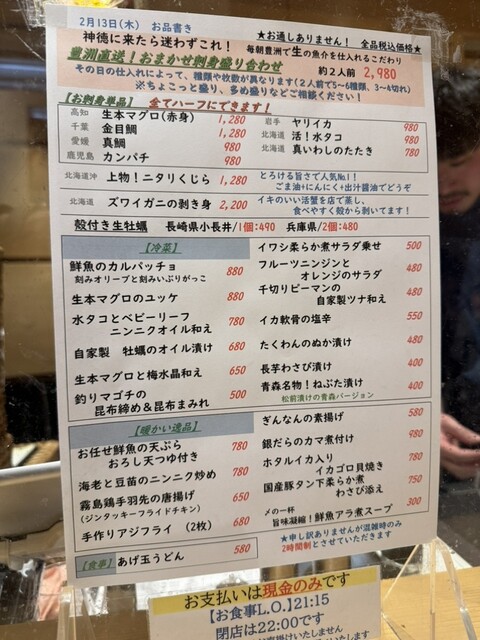 2月13日(木)　お品書き
★お通しありません！　全品税込価格★
神徳に来たら迷わずこれ！
毎朝豊洲で生の魚介を仕入れるこだわり
豊洲直送！おまかせ刺身盛り合わせ　約２人前　2,980
その日の仕入れによって、種類や枚数が異なります（２人前で5～6種類、3～4切れ）
※ちょこっと盛り、多め盛りなどご相談ください！
【お刺身単品】　全てハーフにできます！
高知　生本マグロ(赤身)　1,280
千葉　金目鯛　1,280
愛媛　真鯛　980
鹿児島　カンパチ　980
岩手　ヤリイカ　980
北海道　活！水タコ　980
北海道　真いわしのたたき　780
北海道沖　上物！ニタリくじら　1,280
とろける旨さで人気No.1！
ごま油+にんにく+出汁醤油でどうぞ
北海道　ズワイガニの剥き身　2,200
イキのいい活蟹を店で蒸し、
食べやすく殻から剥いてます！
殻付き生牡蠣　長崎県小長井/1個:490　兵庫県/2個:480
【冷菜】
鮮魚のカルパッチョ　880
刻みオリーブと刻みいぶりがっこ
生本マグロのユッケ　880
水タコとベビーリーフ
ニンニクオイル和え　780
自家製　牡蠣のオイル漬け　680
生本マグロと梅水晶和え　650
釣りマゴチの
昆布締め＆昆布まみれ　500
イワシ柔らか煮サラダ乗せ　500
フルーツニンジンと
オレンジのサラダ　480
千切りピーマンの
自家製ツナ和え　480
イカ軟骨の塩辛　550
たくわんのぬか漬け　480
長芋わさび漬け　400
青森名物！ねぶた漬け　400
松前漬けの青森バージョン
【暖かい逸品】
お任せ鮮魚の天ぷら
おろし天つゆ付き　780
海老と豆苗のニンニク炒め　780
霧島鶏手羽先の唐揚げ　650
(ジンタッキーフライドチキン)
手作りアジフライ　(2枚)　680
ぎんなんの素揚げ　580
銀だらのカマ煮付け　980
ホタルイカ入り
イカゴロ貝焼き　780
国産豚タン下茹柔らか煮
わさび添え　750
〆の一杯
旨味凝縮！鮮魚アラ煮スープ　300
【食事】　あげ玉うどん　580
★申し訳ありませんが混雑時のみ
2時間制とさせていただきます
お支払いは現金のみです
【お食事L.O.】21:15
閉店は22:00です